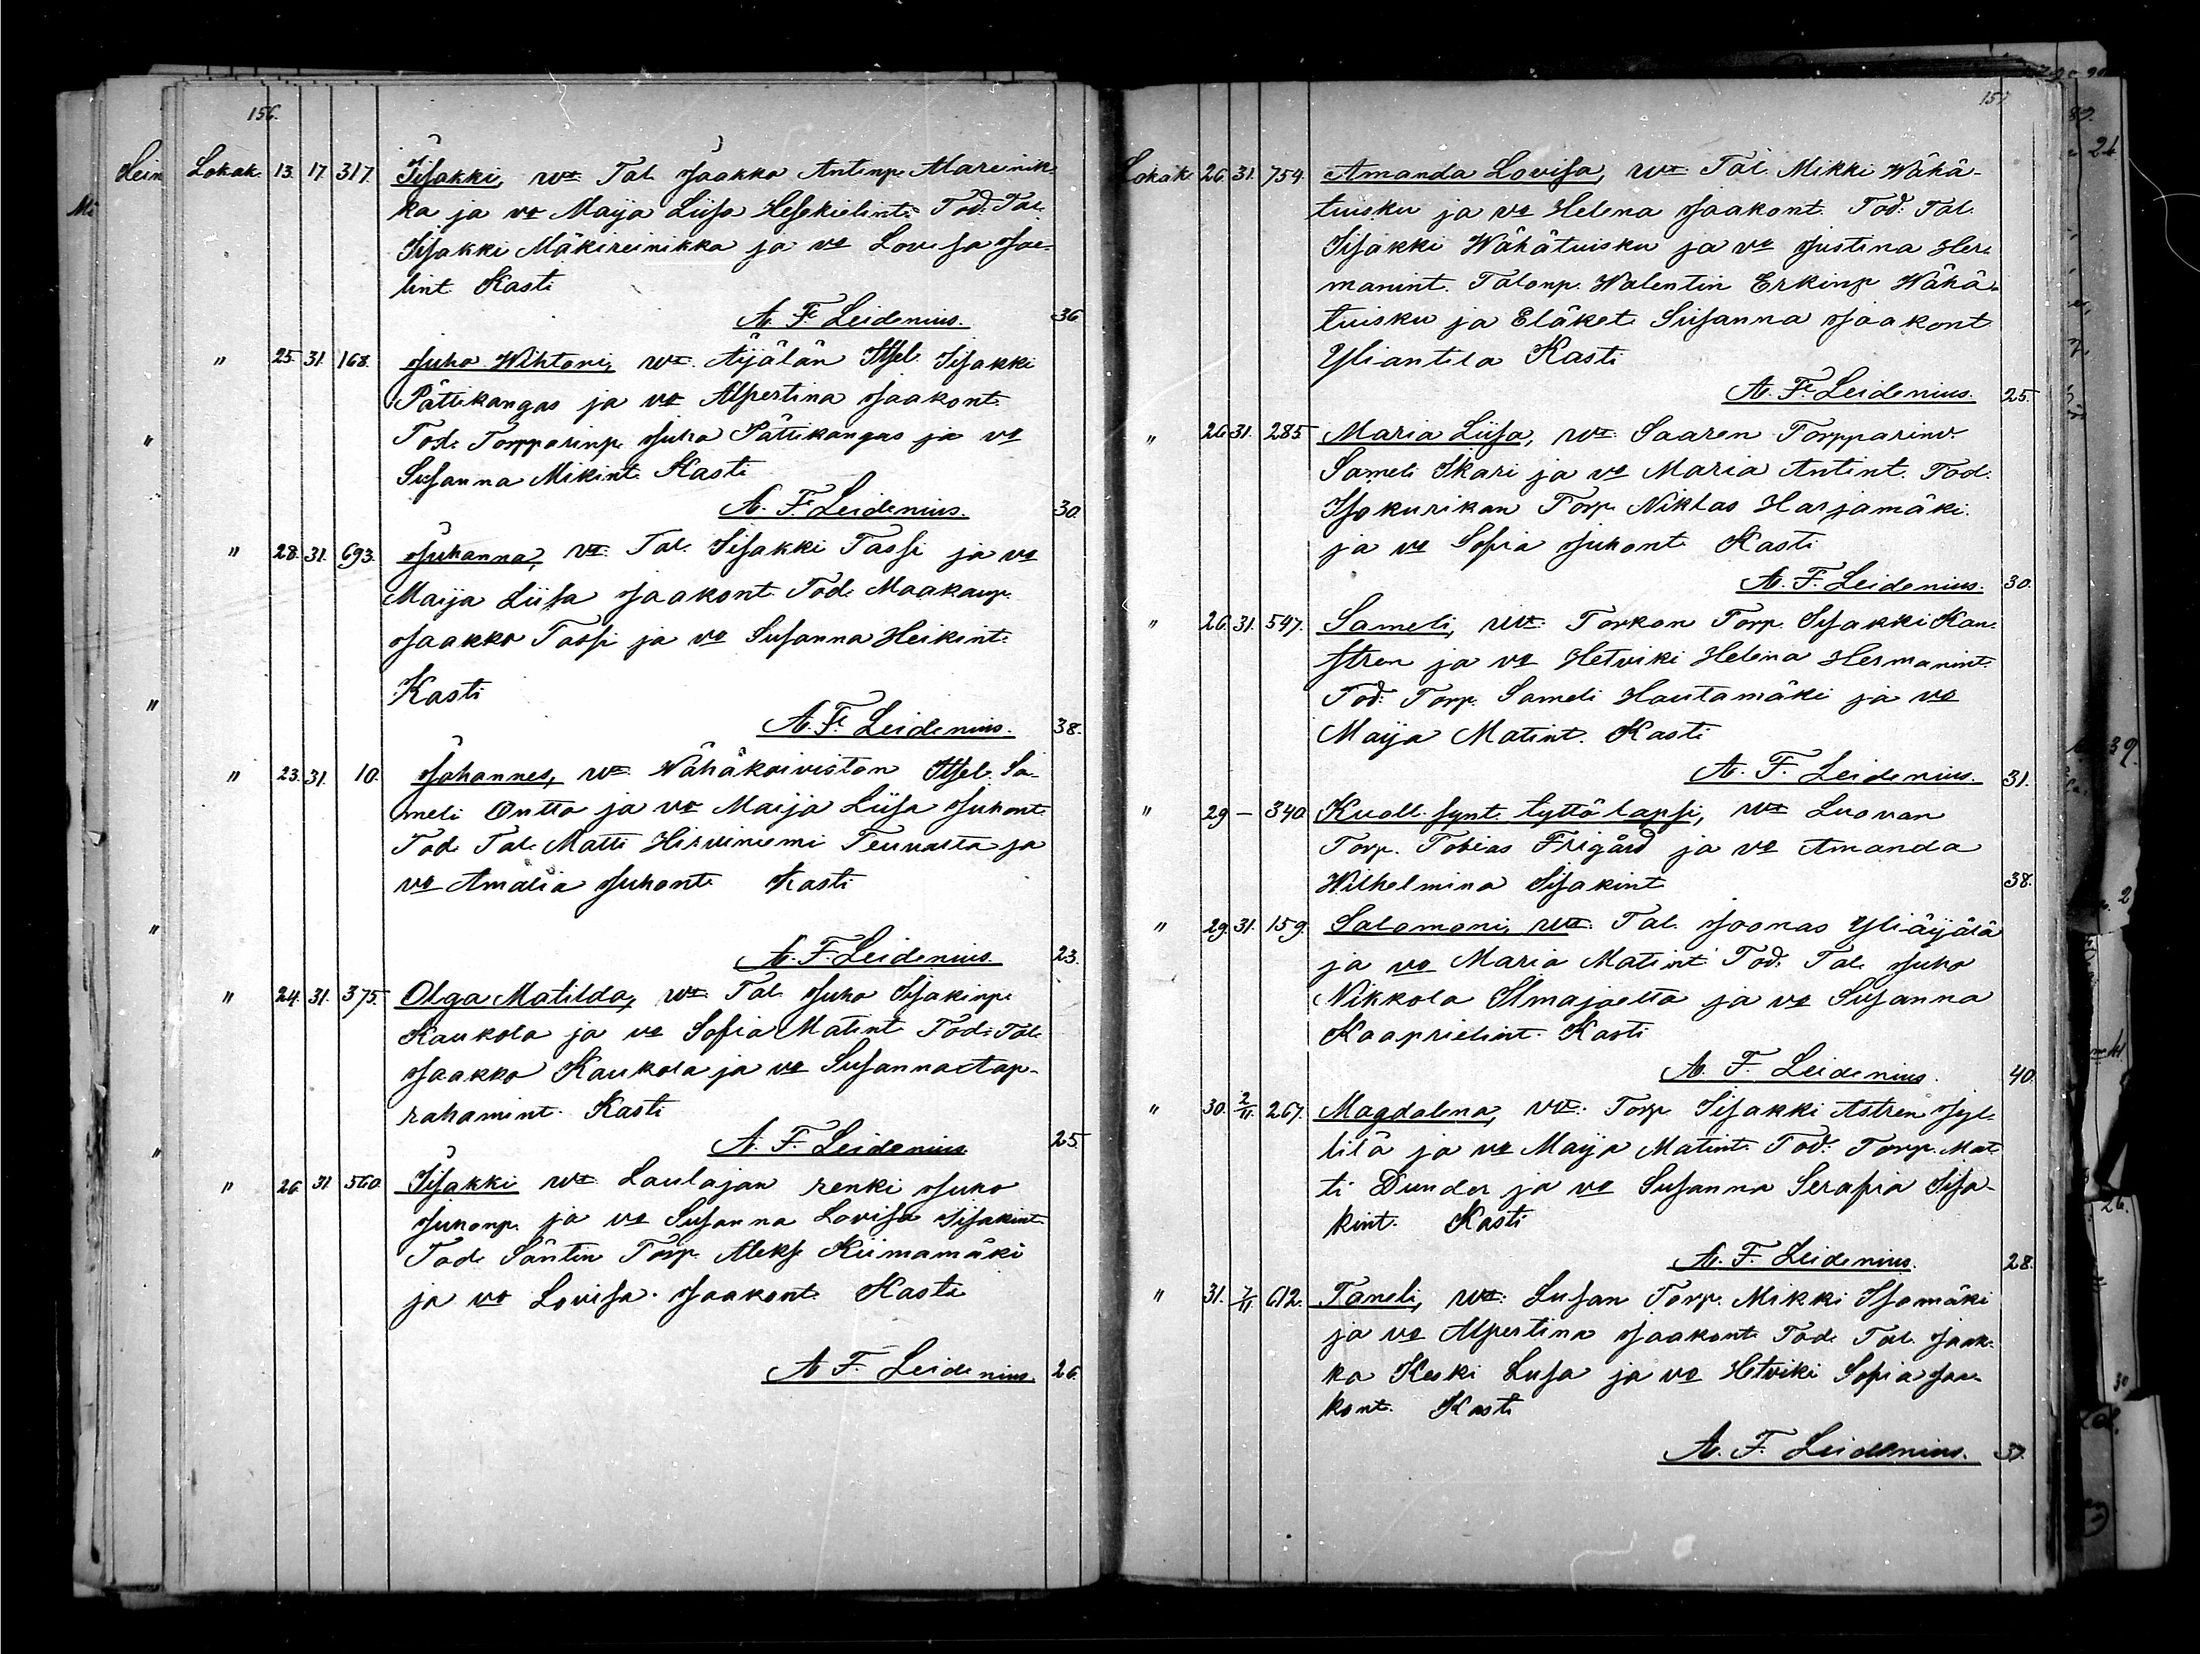 156.
Lokak. 13. 17. 317. Iisakki, vt. Tal. Jaakko Antinp. Mareinik-
ka ja vo Maija Liisa Hesekielint. Tod. Tal.
Iisakki Mäkireinikka ja vo Lovisa Joe-
lint. Kasti
A. F. Leidenius. 36
" 25. 31. 168. Juho Wihtori, vt. Äijälän Itsel. Iisakki
Pättikangas ja vo Alpertina Jaakont.
Tod. Torpparinp. Juho Pättikangas ja vo
Susanna Mikint. Kasti
A. F. Leidenius. 30.
" 28. 31. 693. Juhanna, vt. Tal. Iisakki Tassi ja vo
Maija Liisa Jaakont. Tod. Maakaup.
Jaakko Tassi ja vo Susanna Heikint.
Kasti
A. F. Leidenius. 38.
" 23. 31. 10. Johannes, vt. Wähäkoiviston Itsel. Sa-
meli Ontto ja vo Maija Liisa Juhont.
Tod. Tal. Matti Hirviniemi Teuvalta ja
vo Amalia Juhont. Kasti
A. F. Leidenius. 23.
" 24. 31. 375. Olga Matilda, vt. Tal. Juho Iisakinp.
Kaukola ja vo Sofia Matint. Tod. Tal.
Jaakko Kaukola ja vo Susanna Ap-
rahamint. Kasti
A. F. Leidenius. 25.
" 26. 31. 560. Iisakki vt. Laulajan renki Juho
Juhonp. ja vo Susanna Lovisa Iisakint.
Tod. Säntin Torp. Aleks. Kiimamäki
ja vo Lovisa Jaakont. Kasti
A. F. Leidenius. 26.
Lokak. 26. 31. 754. Amanda Lovisa, vt. Tal. Mikki Wähä-
tuisku ja vo Helena Jaakont. Tod. Tal.
Iisakki Wähätuisku ja vo Justina Her-
manint. Talonp. Walentin Erkinp. Wähä-
tuisku ja Eläket. Susanna Jaakont.
Yliantila Kasti
A. F. Leidenius. 25.
" 26. 31. 285. Maria Liisa, vt. Saaren Torpparinv.
Sameli Ikari ja vo Maria Antint. Tod.
Isokurikan Torp. Niklas Harjamäki
ja vo Sofia Juhont. Kasti
A. F. Leidenius. 30.
" 26. 31. 597. Sameli, vt. Torkon Torp. Iisakki Kan-
stren ja vo Hetviki Helena Hermanint.
Tod. Torp. Sameli Hautamäki ja vo
Maija Matint. Kasti
A. F. Leidenius. 31.
" 29 — 340. Kuoll. synt. tyttö lapsi, vt. Luovan
Torp. Tobias Frigård ja vo Amanda
Wilhelmina Iisakint. 38.
" 29. 31. 159. Salomoni, vt. Tal. Joonas Yliäijälä
ja vo Maria Matint. Tod. Tal. Juho
Nikkola Ilmajoelta ja vo Susanna
Kaaprielint. Kasti
A. F. Leidenius. 40.
" 30. 2/11. 267. Magdalena, vt. Torp. Iisakki Astren Jyl-
lilä ja vo Maija Matint. Tod. Torp. Mat-
ti Dunder ja vo Susanna Serafia Iisa-
kint. Kasti
A. F. Leidenius. 28.
" 31. 7/11 612. Taneli, vt. Lusan Torp. Mikki Isomäki
ja vo Alpertina Jaakont. Tod. Tal. Jaak-
ko Keski Lusa ja vo Hetviki Sofia Jaa-
kont. Kasti
A. F. Leidenius. 37.